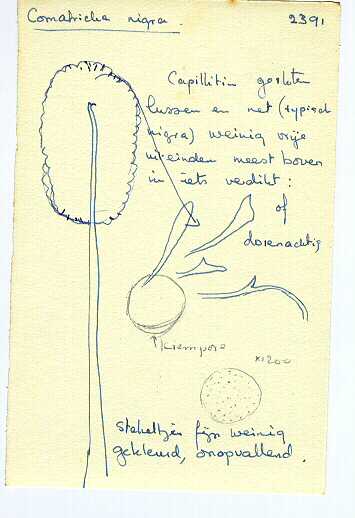 Comatricha nigra. 2391
Capillitin gesloten
lussen en net (typisch
nigra) weinig vrije
uiteinden meest boven
in iets verdikt:
of
dorenachtig
Kiempore
x1200
stekeltjes fijn weinig
gekleurd, onopvallend.